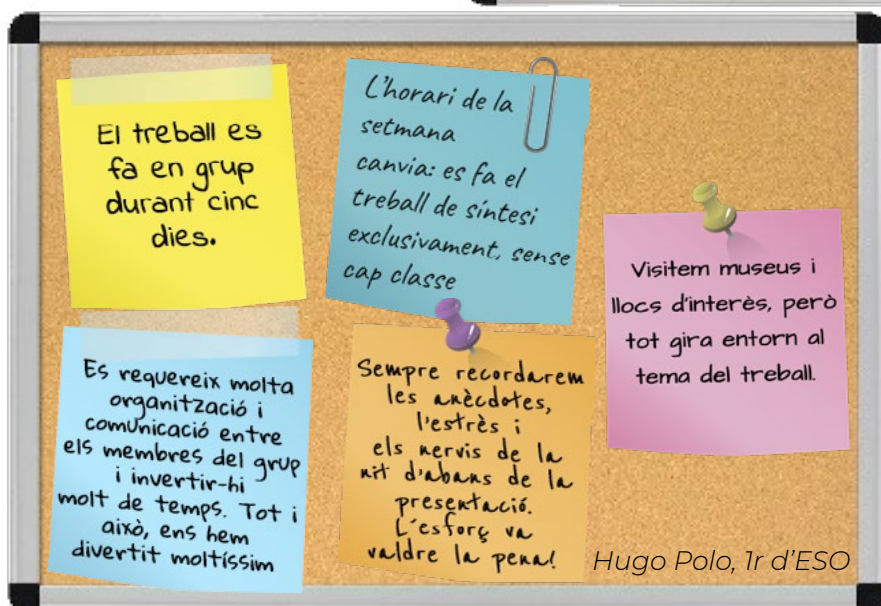 El treball es
fa en grup
durant cinc
dies.
L'horari de la
setmana
canvia: es fa el
treball de síntesi
exclusivament, sense
cap classe
Visitem museus i
llocs d'interès, però
tot gira entorn al
tema del treball.
Es requereix molta
organització i
comunicació entre
els membres del grup
i invertir-hi
molt de temps. Tot i
això, ens hem
divertit moltíssim
Sempre recordarem
les anècdotes,
l'estrès i
els nervis de la
nit d'abans de la
presentació.
L´esforç va
valdre la pena!
Hugo Polo, 1r d'ESO